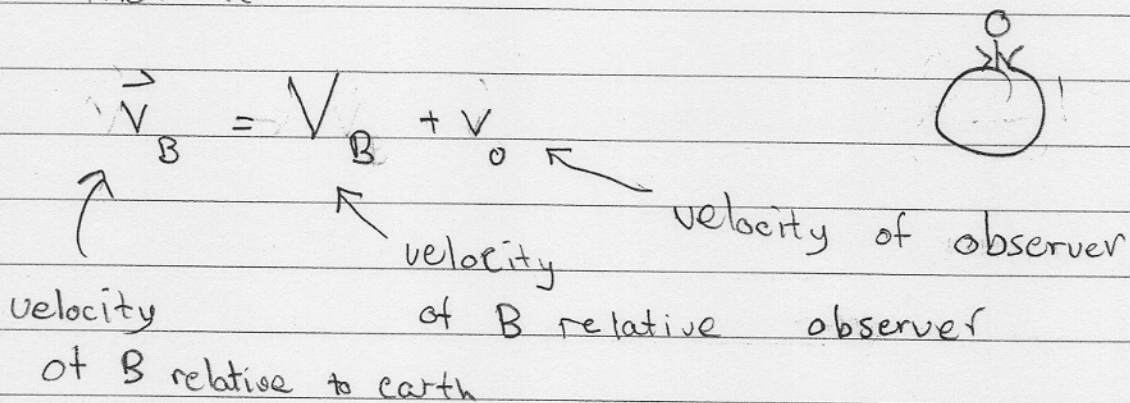 v⃗_B = V_B + v_o
velocity of observer
velocity
of B relative observer
velocity
of B relative to earth